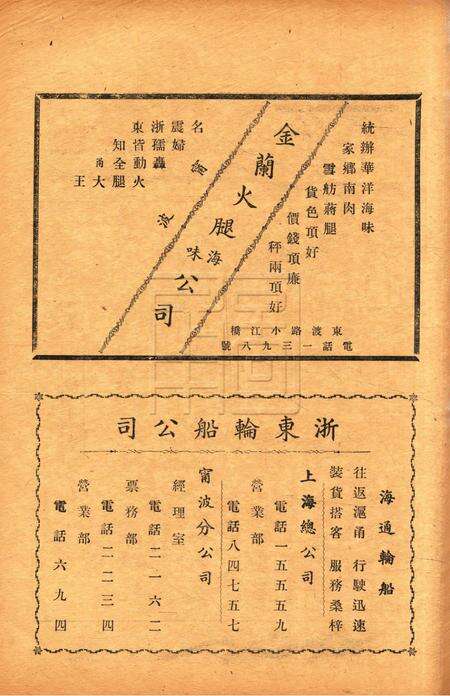 統辦華洋海味
家鄉南肉
雪舫蔣腿
貨色頂好
價錢頂廉
秤兩頂好
金蘭火腿海味公司
甯波
名震浙東
婦孺皆知
轟動全甬
火腿大王
東渡路小江橋
電話一三九八號
浙東輪船公司
海通輪船
往返滬甬　行駛迅速
裝貨搭客　服務桑梓
上海總公司
電話一五五五九
營業部
電話八四七五七
甯波分公司
經理室
電話二一六二
票務部
電話二二三四
營業部
電話六九四